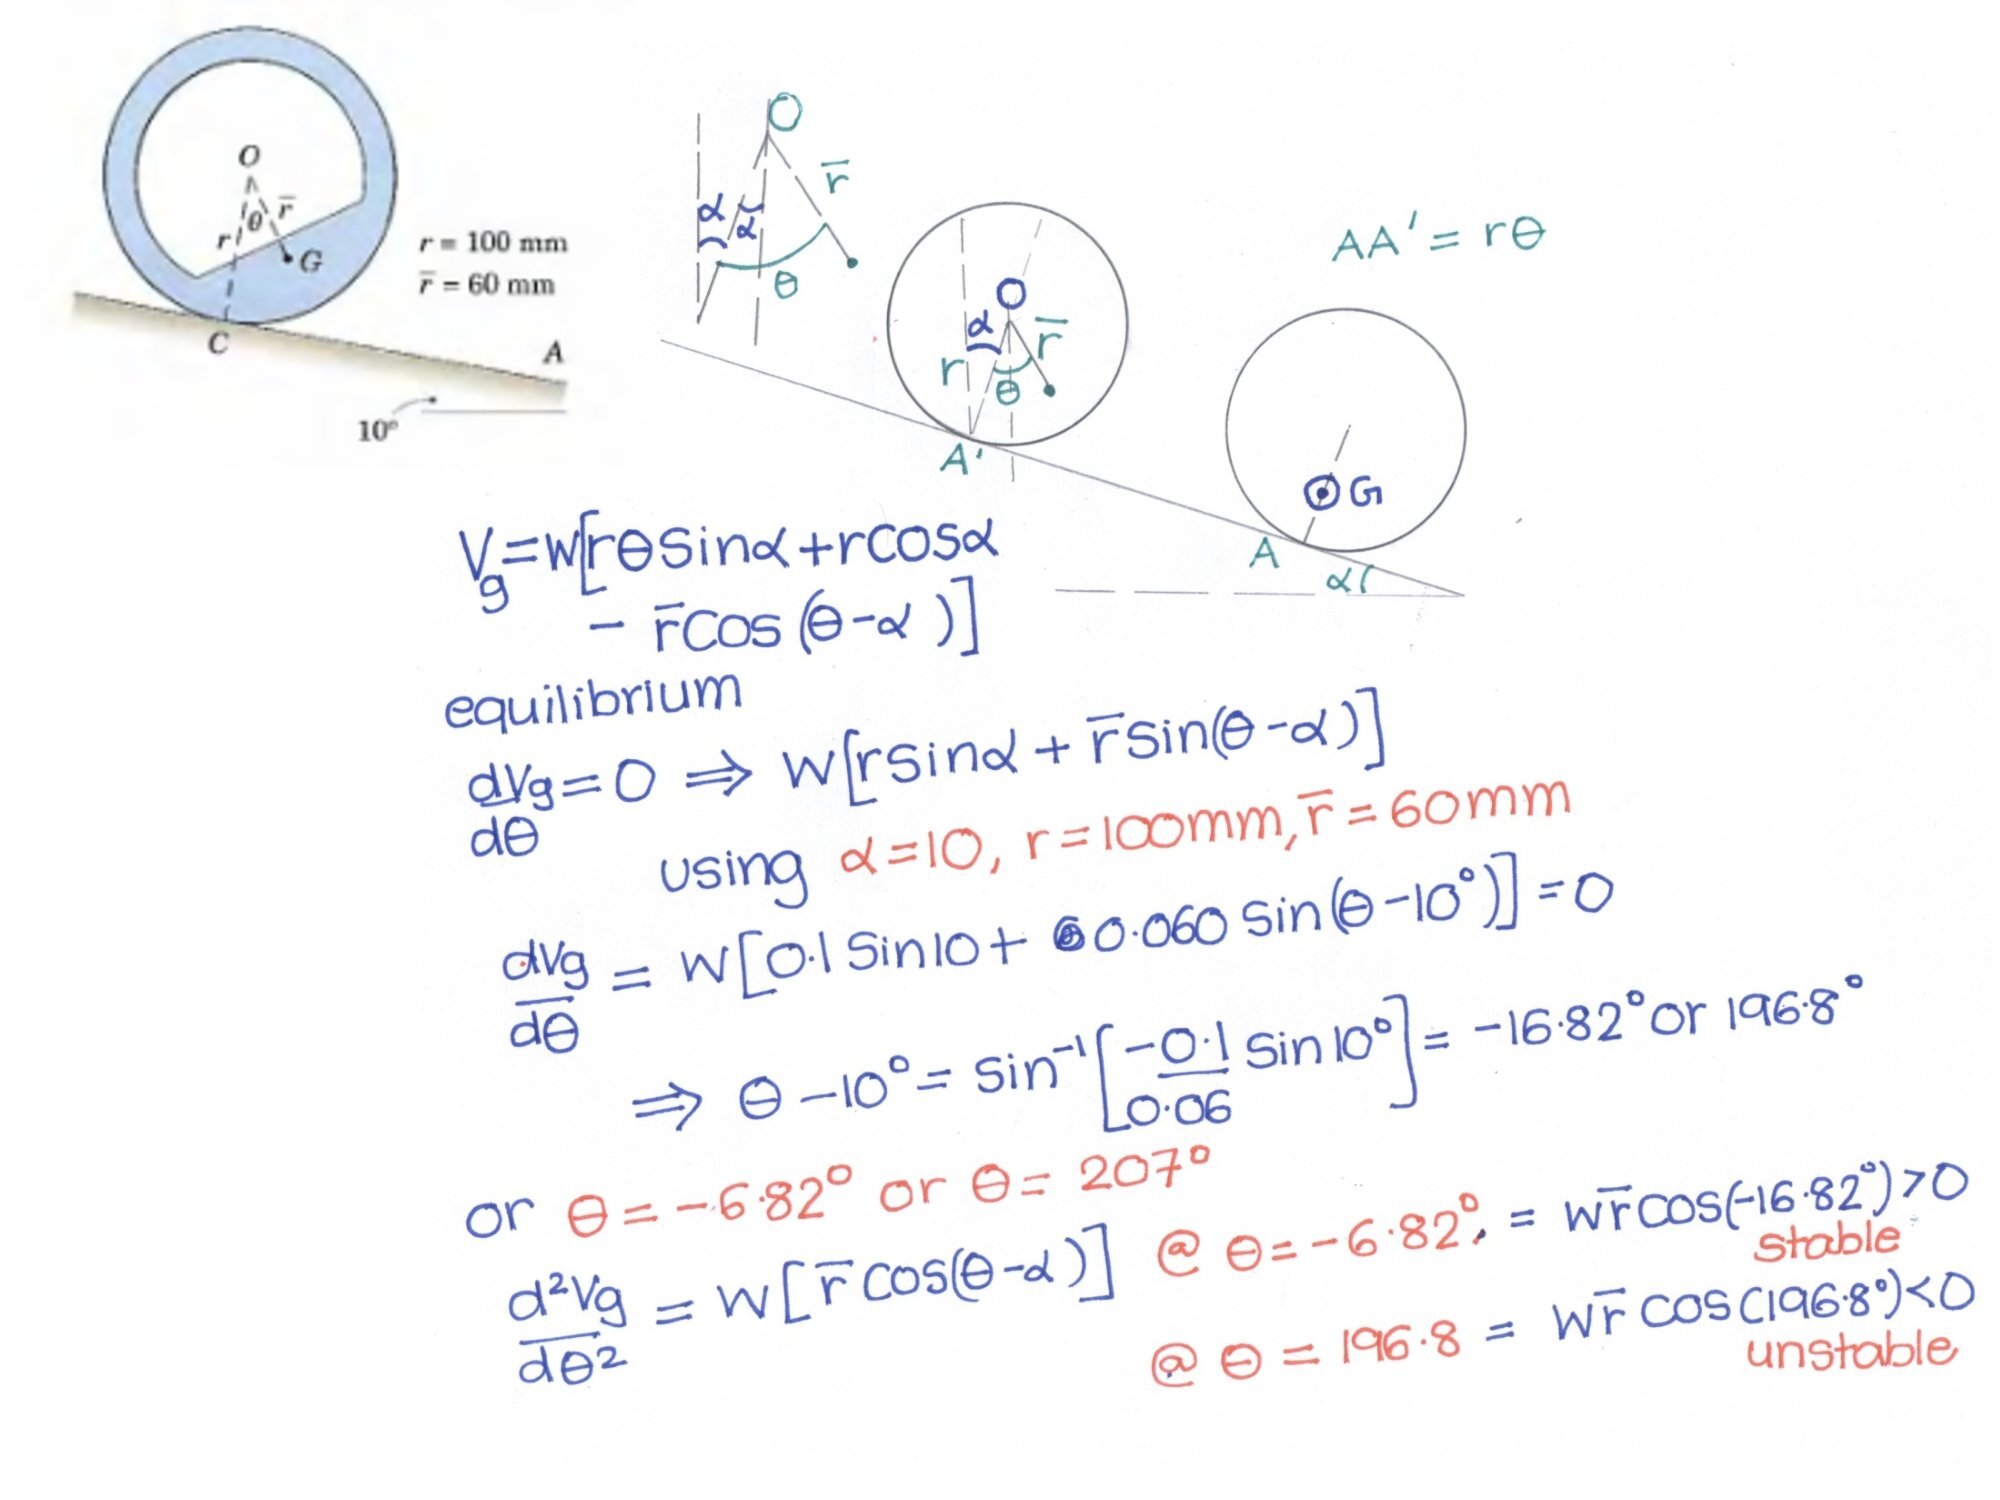 O
θ
r̄
r
G
C
A
10°
r = 100 mm
r̄ = 60 mm
O
r̄
α
α
θ
O
α
r̄
r
θ
A'
AA' = rθ
G
A
α
Vg = w[rθsinα + rcosα
− r̄cos(θ-α)]
equilibrium
dVg/dθ = 0 ⇒ w[rsinα + r̄sin(θ-α)]
using α=10, r=100mm, r̄=60mm
dVg/dθ = w[0.1 Sin10 + 0.060 sin(θ-10°)] = 0
⇒ θ-10° = sin⁻¹[-0.1/0.06 sin10°] = -16.82° or 196.8°
or θ = -6.82° or θ = 207°
d²Vg/dθ² = w[r̄cos(θ-α)]
@ θ = -6.82°, = wr̄cos(-16.82°)>0
stable
@ θ = 196.8 = wr̄cos(196.8°)<0
unstable